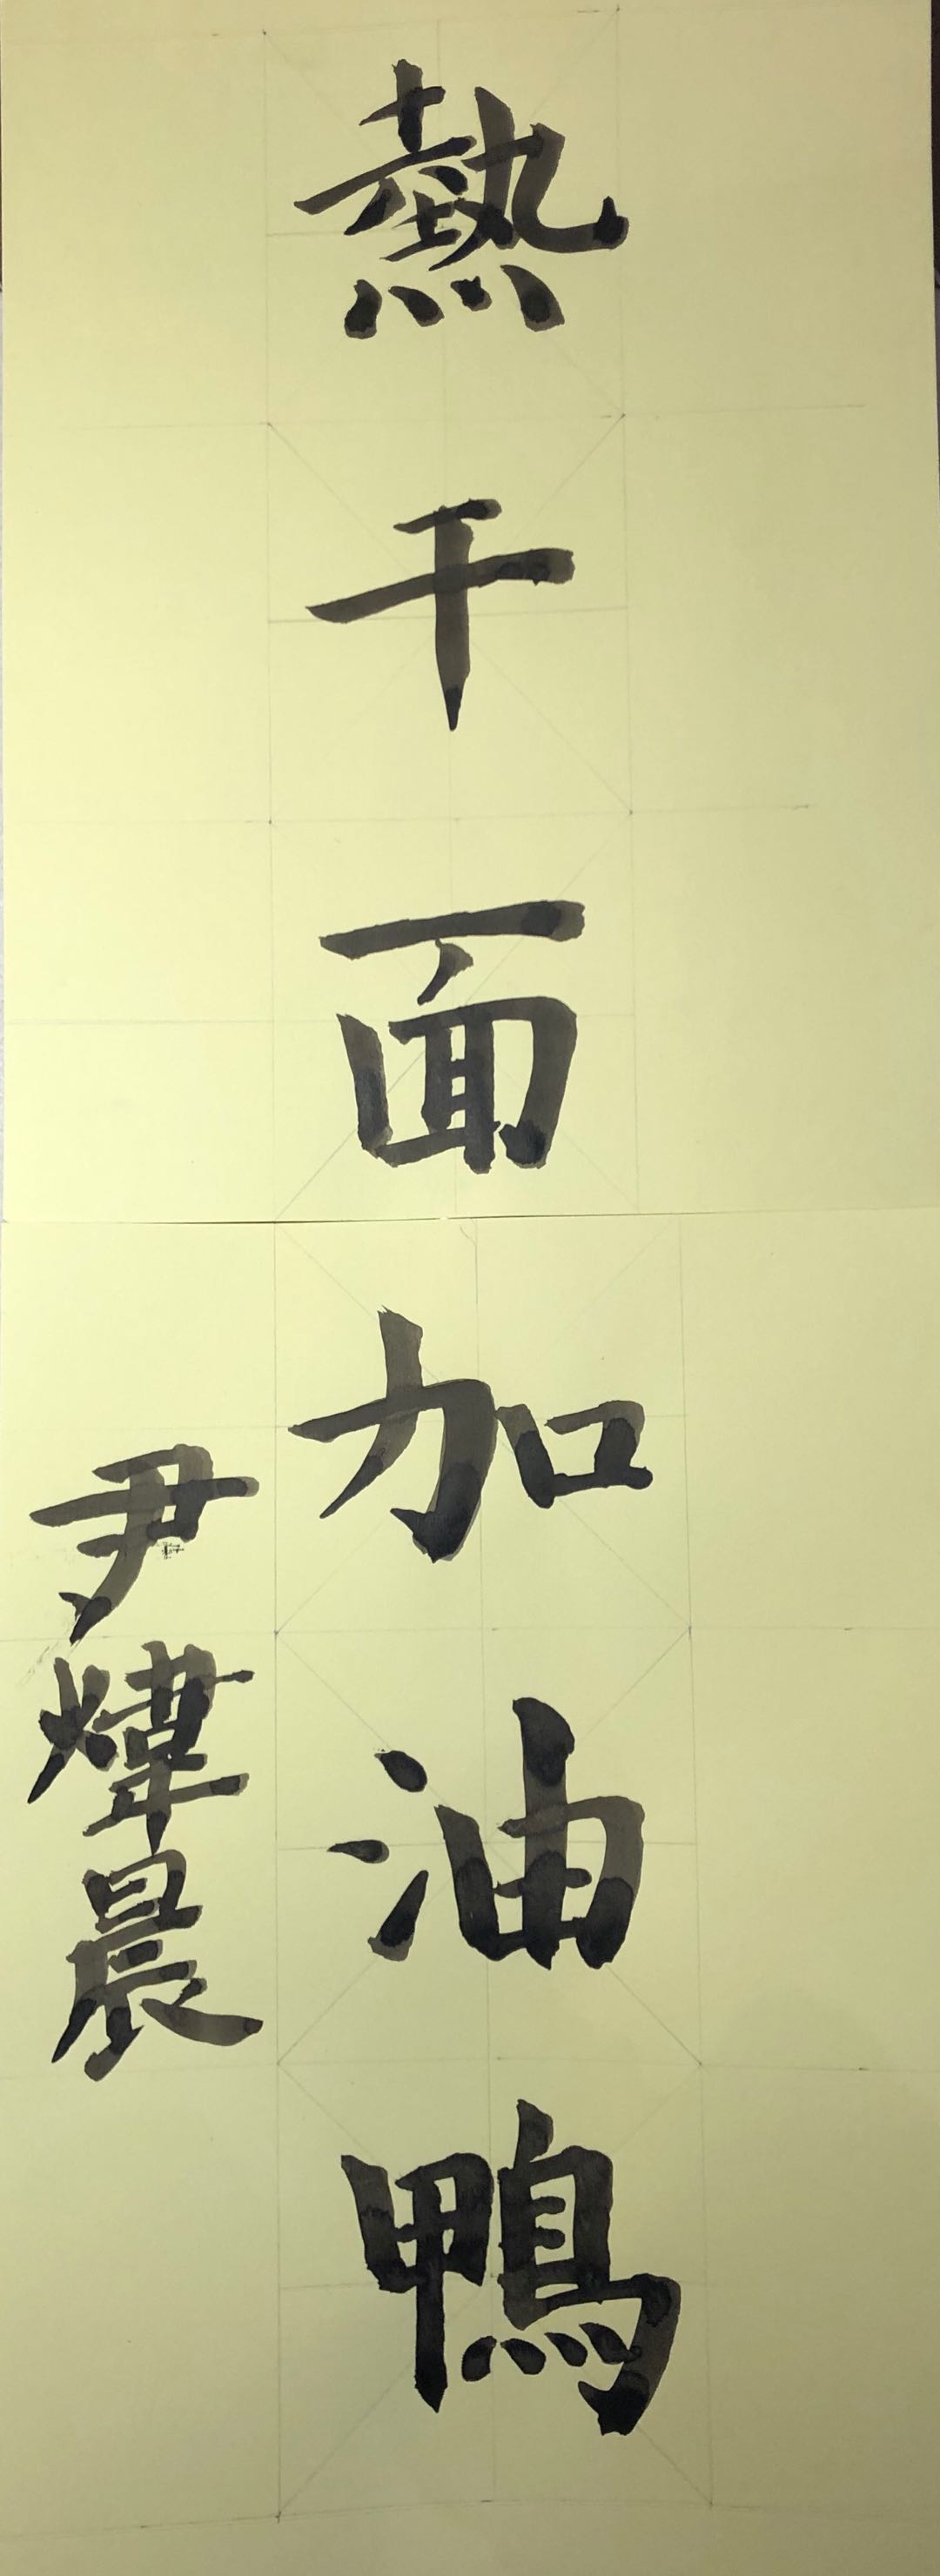 熱干面加油鴨
尹煒晨